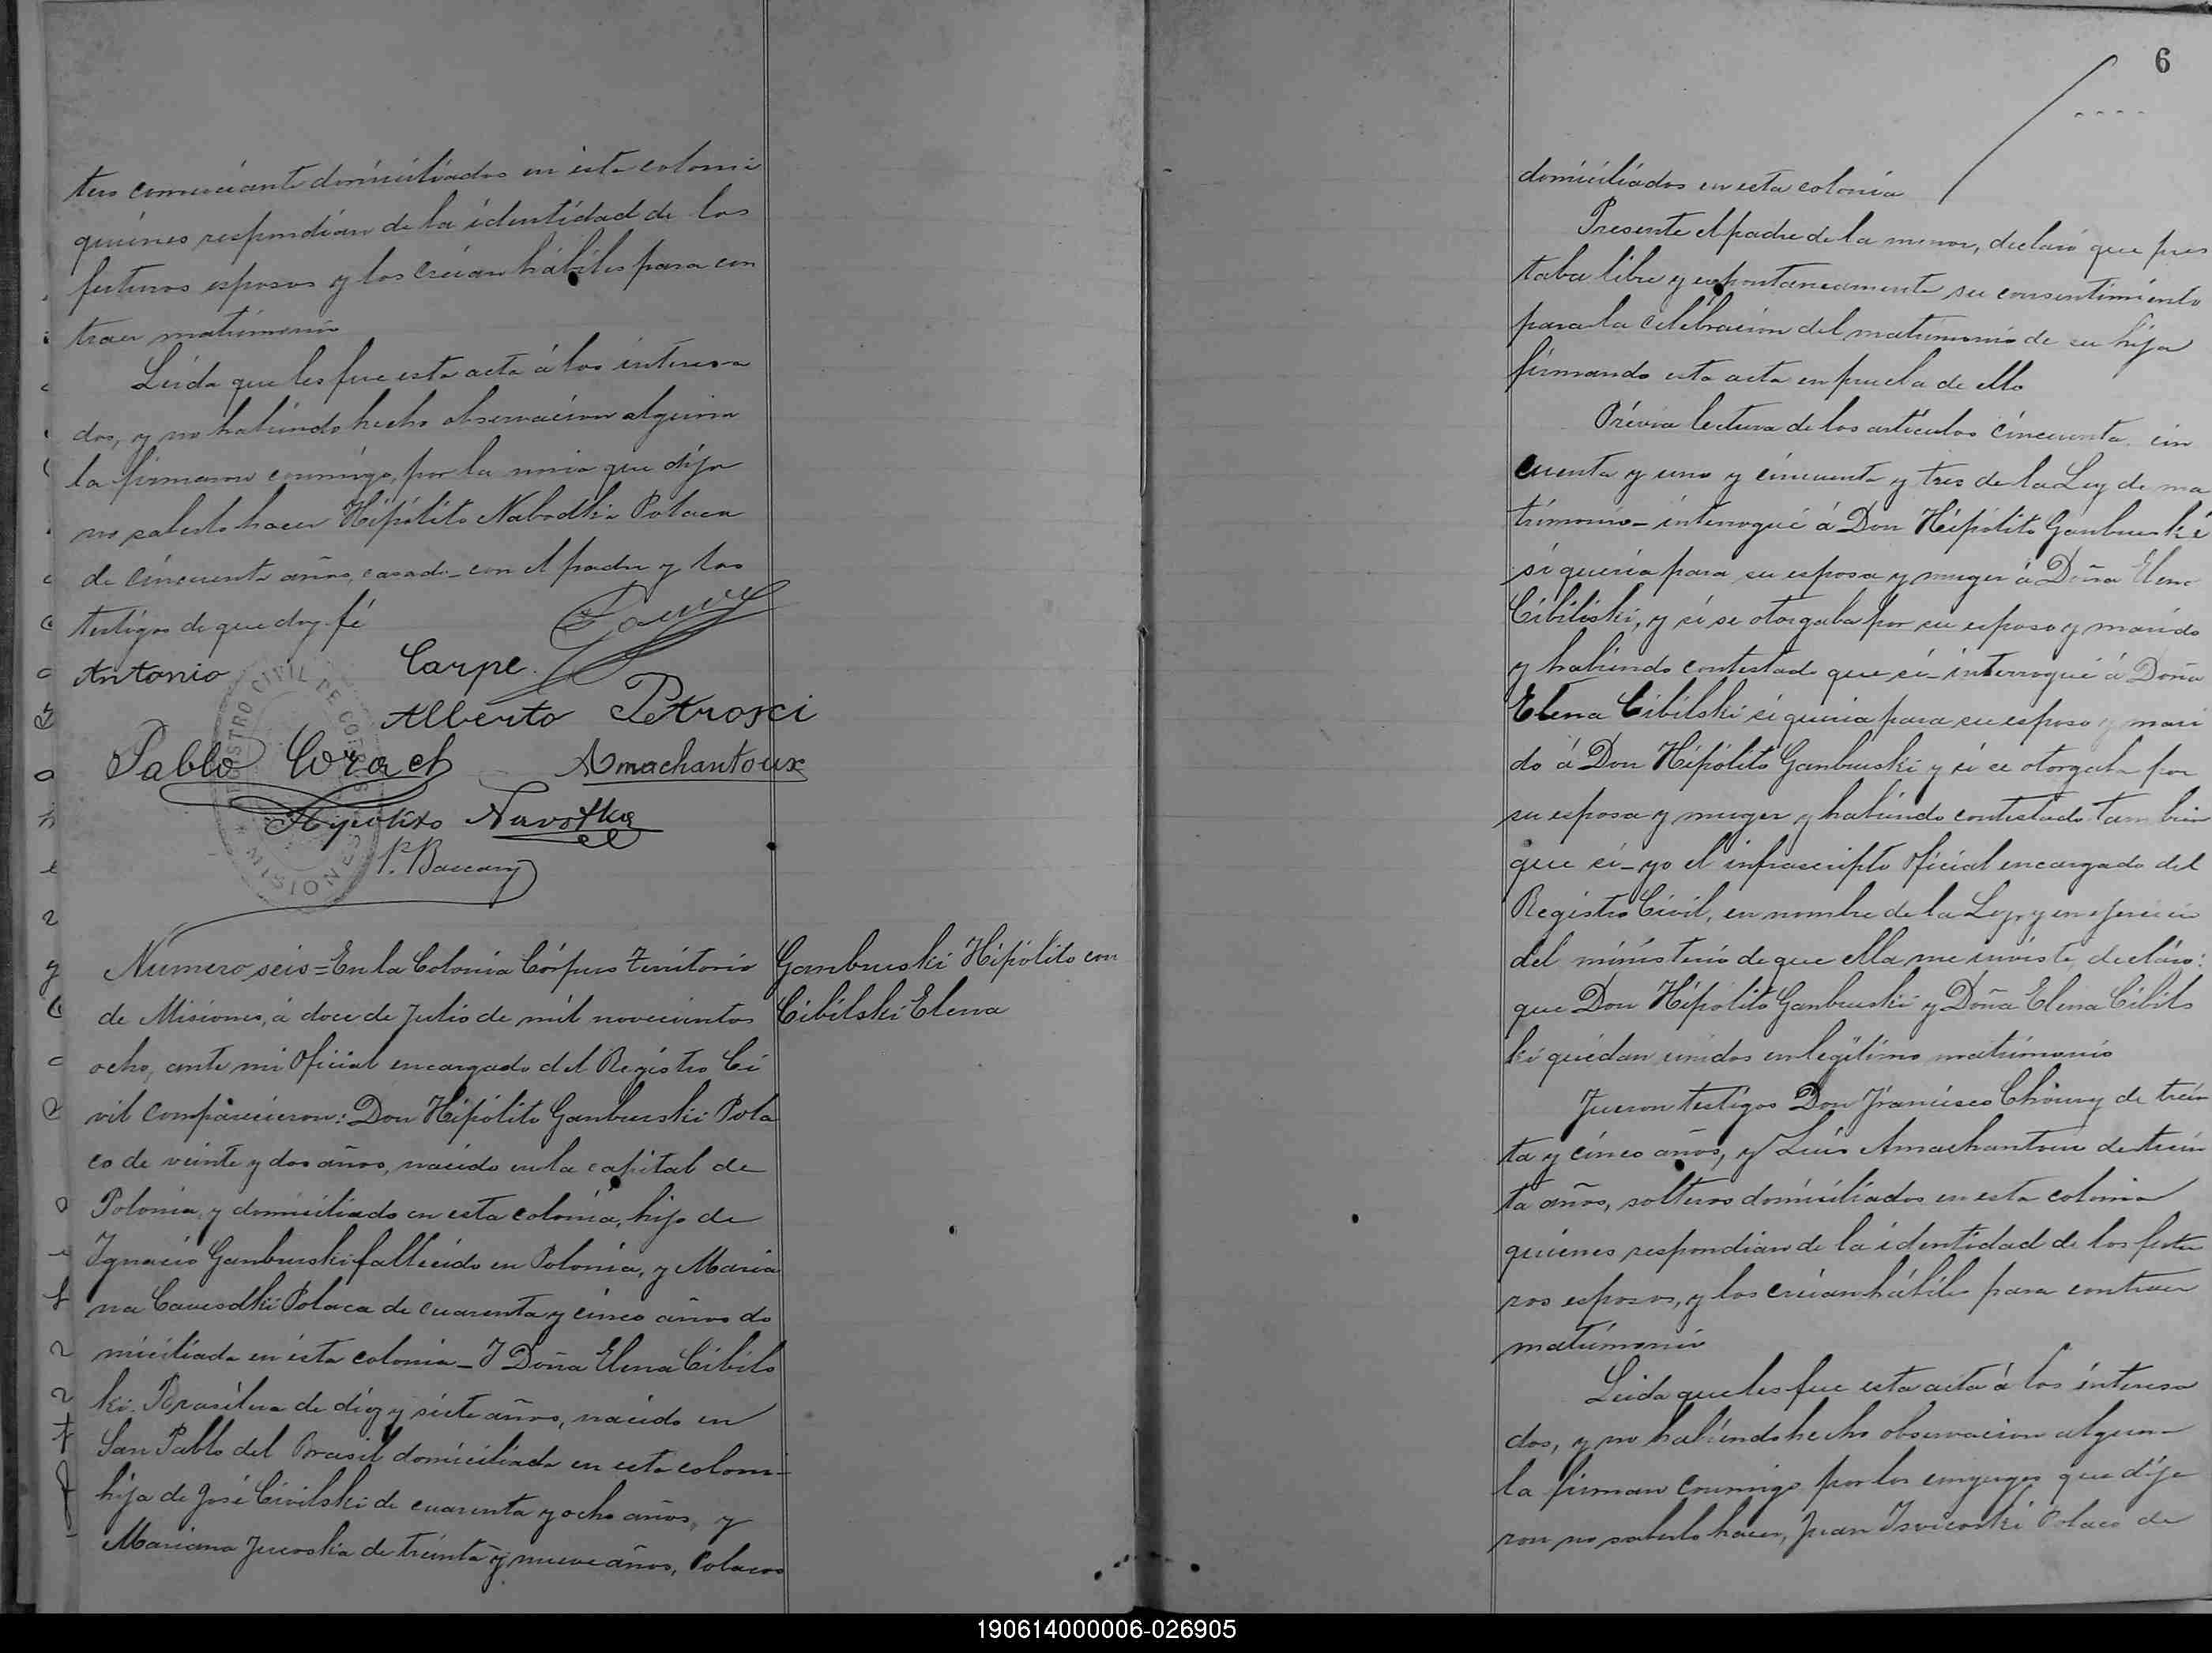 teros comerciante domiciliados en ésta coloni
quiénes respondian de la identidad de los
futuros esposos y los creían hábiles para con
traer matrimonio
Leida que les fué esta acta á los interesa
dos, y no habiendo hecho observacion alguna
la firmaron conmigo, por la novia que dijo
no saberlo hacer Hipólito Nabodki Polaca
de cincuenta años, casado con el padre y los
testigos de que doy fé
Antonio Carpe
Alberto Petrosci
Pablo Amachantoux
Hypolito Navotka
REGISTRO CIVIL DE CORPUS
MISIONES
Número seis = En la Colonia Córpus Territorio
de Misiones, á doce de Julio de mil novecientos
ocho, ante mi Oficial encargado del Registro Ci
vil comparecieron: Don Hipólito Ganbruski Pola
co de veinte y dos años, nacido en la capital de
Polonia, y domiciliado en esta colonia, hijo de
Ignacio Ganbruski fallecido en Polonia, y Maria
na Cauesdki Polaca de cuarenta y cinco años do
miciliada en ésta colonia _ I Doña Elena Cibils
ki Brasilera de diez y siete años, nacido en
San Pablo del Brasil domiciliada en esta coloni
hija de José Civilski de cuarenta y ocho años, y
Mariana de treinta y nueve años, Polacos
Ganbruski Hipólito con
Cibilski Elena
6
domiciliados en esta colonia
Presente el padre de la menor, declaró que pres
taba libre y espontaneamente su consentimiento
para la celebracion del matrimonio de su hija
firmando esta acta en prueba de ello
Prévia lectura de los articulos cincuenta, cin
cuenta y uno y cincuenta y tres de la Ley de ma
trimonio _ interrogué á Don Hipólito Ganbruski
si queria para su esposa y muger á Doña Elena
Cibilski, y si se otorgaba por su esposo y marido
y habiendo contestado que sí _ interrogué á Doña
Elena Cibilski si queria para su esposo y mari
do á Don Hipólito Ganbruski y si se otorgaba por
su esposa y muger y habiendo contestado tambien
que sí _ yo el infrascripto Oficial encargado del
Registro Civil, en nombre de la Ley, y en ejercicio
del ministerio de que ella me inviste, declaro:
que Don Hipólito Ganbruski y Doña Elena Cibils
ki quedan unidos en legitimo matrimonio
Fueron testigos Don Francisco Choury de trein
ta y cinco años, y Luis Amachantoux de trein
ta años, solteros domiciliados en esta colonia
quienes respondian de la identidad de los futu
ros esposos, y los creian hábiles para contraer
matrimonio
Leida que les fue esta acta á los interesa
dos, y no habiendo hecho observacion alguna
la firman conmigo por los conyuges que dije
ron no saberlo hacer, Juan Polaco de
190614000006-026905